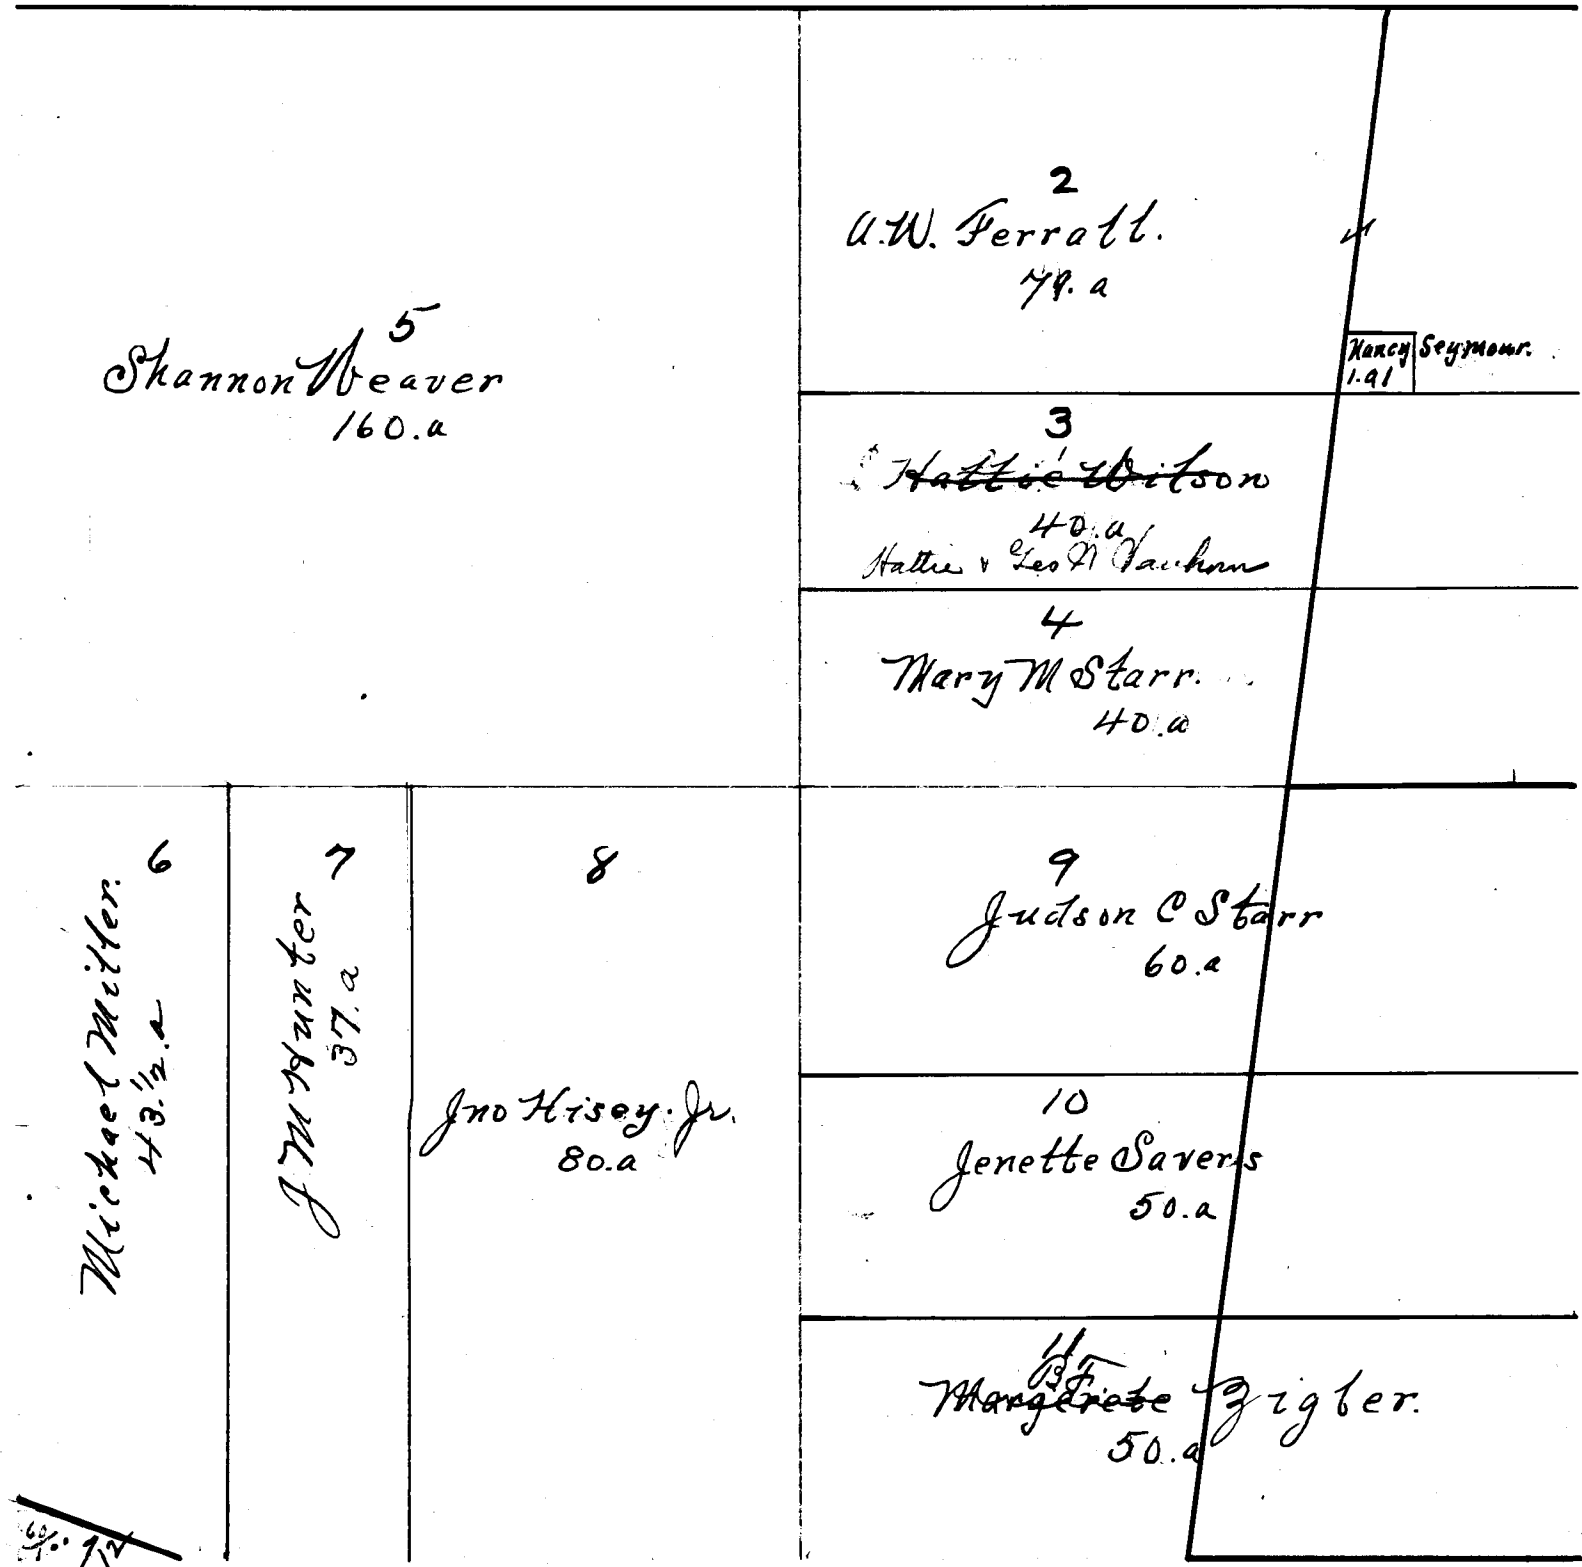 5
Shannon Weaver
160.a
2
A.W. Ferrall.
79. a
Nancy Seymour.
1.91
3
Hattie Wilson
40.a
Hattie & Geo N Vanhorn
4
Mary M Starr.
40.a
6
Michael Miller.
43.½.a
7
J M Hunter
37.a
8
Jno Hisey. Jr.
80.a
9
Judson C Starr
60.a
10
Jenette Savers
50.a
11
B F
Margerete Zigler.
50.a
60/100